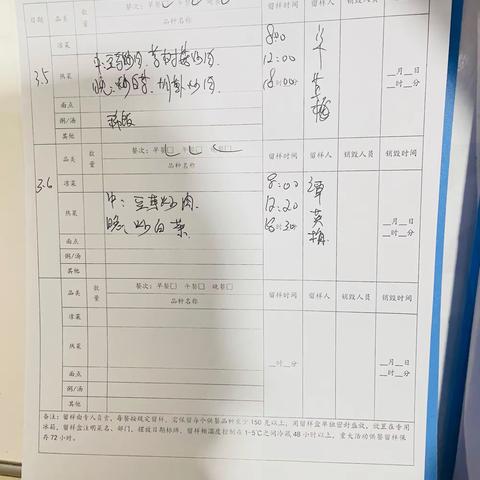 日期 品类 数量 餐次：早餐 午餐 晚餐 留样时间 留样人 销毁人员 销毁时间
品种名称
3.5
凉菜 8:00
热菜 12:00
晚 18:00
__月__日
__时__分
面点
粥/汤 稀饭
其他
品类 数量 餐次：早餐□ 午餐□ 晚餐□ 留样时间 留样人 销毁人员 销毁时间
品种名称
3.6
凉菜 8:00 谭
热菜 中：豆芽炒肉 12:20 英
晚：炒白菜 18:30 梅
__月__日
__时__分
面点
粥/汤
其他
品类 数量 餐次：早餐□ 午餐□ 晚餐□ 留样时间 留样人 销毁人员 销毁时间
品种名称
凉菜
热菜
__时__分
__月__日
__时__分
面点
粥/汤
其他
备注：留样由专人负责，每餐按规定留样，需保留每个供餐品种至少150克以上，用留样盒单独密封盛放，放置在专用
冰箱，留样盒注明菜名、部门、摆放日期标牌，留样柜温度控制在1-5℃之间冷藏48小时以上，重大活动供餐留样保
存72小时。